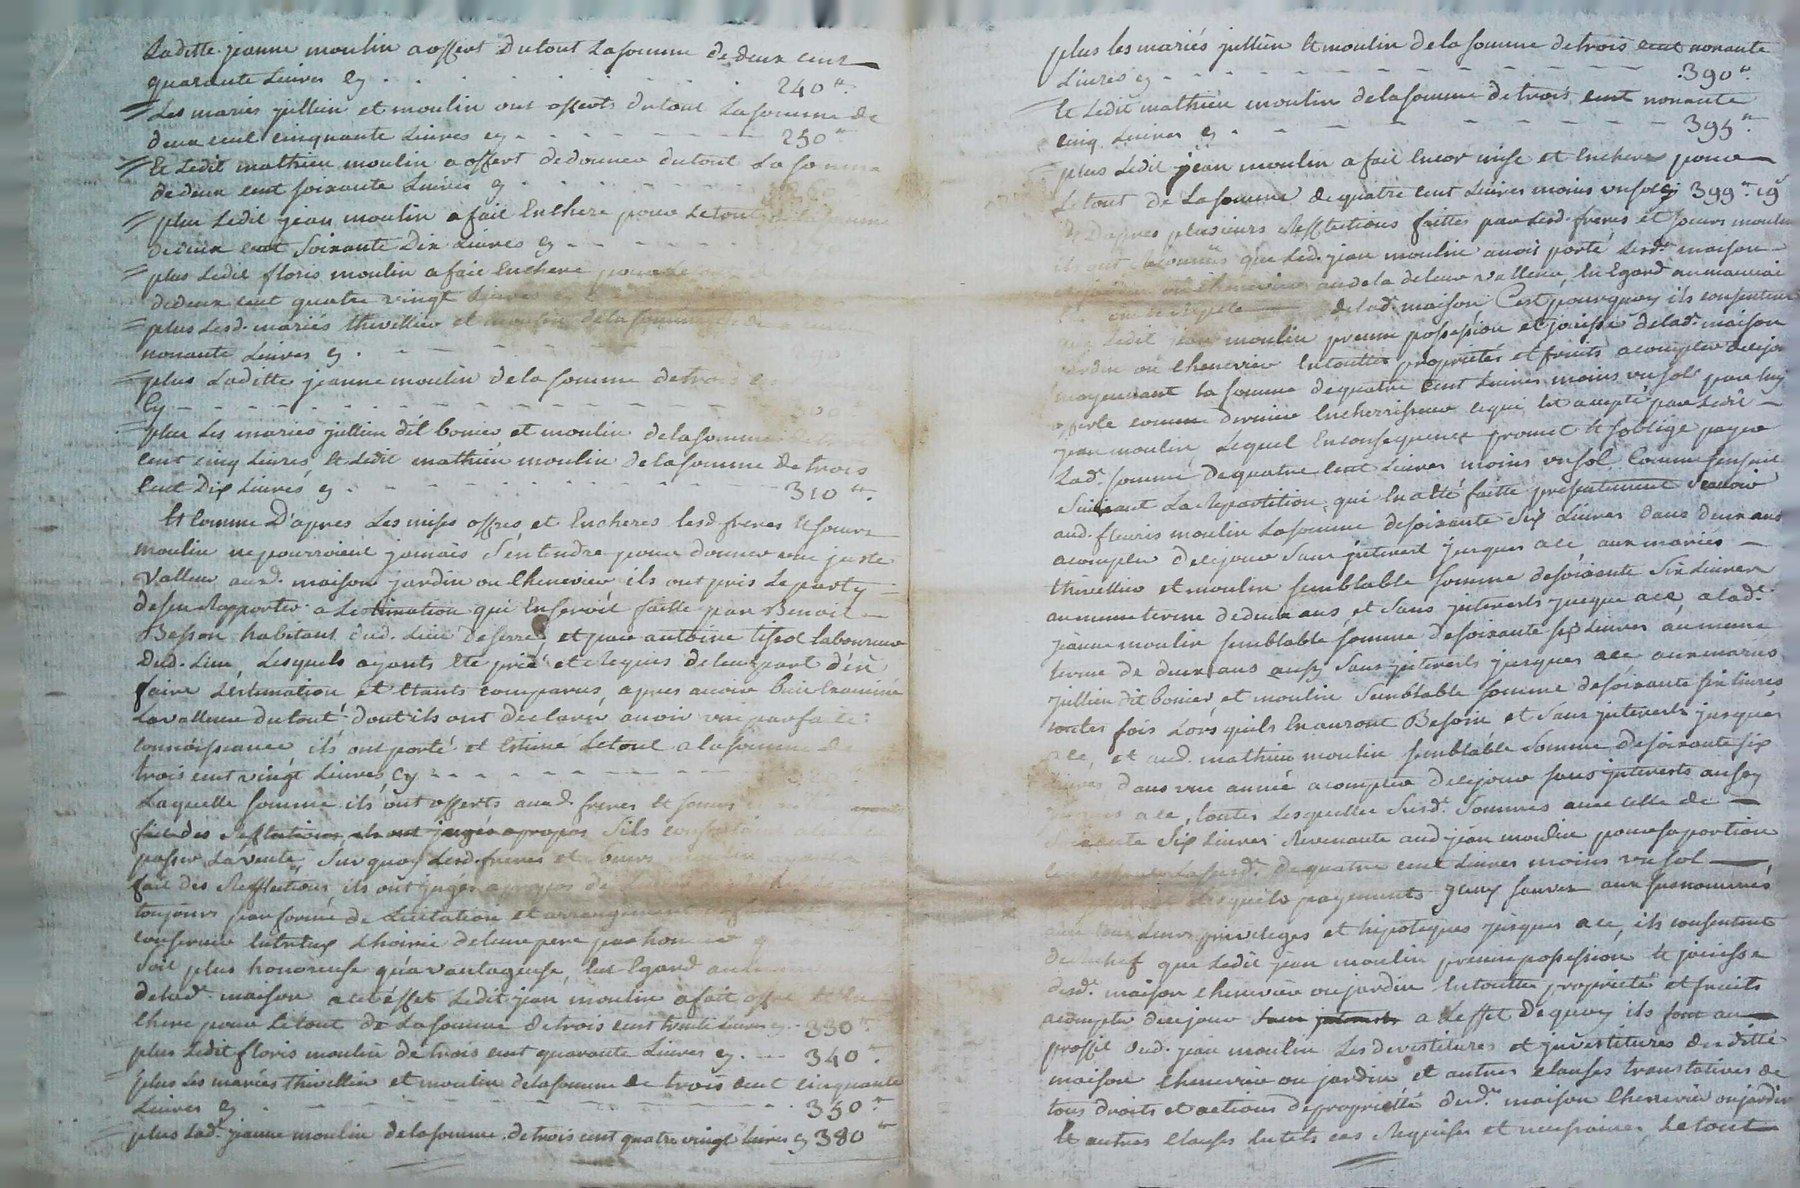 Laditte jeanne moulin a offert dutout La somme de deux cent
quarante Livres cy 240tt.
Les mariés jullien et moulin ont offerts dutout La somme de
deux cent cinquante Livres cy 250tt
Et Ledit mathieu moulin a offert de donner dutout La somme
de deux cent soixante Livres cy
plus Ledit jean moulin a fait Enchere pour Letout
de deux cent Soixante Dix Livres cy
plus Ledit floris moulin a fait Enchere
de deux cent quatre vingt Livres cy
plus Lesd. mariés thivellier et moulin de la somme de
nonante Livres cy
plus Laditte jeanne moulin de la somme de trois
Cy
plus Les mariés jullien dit bonier et moulin de la somme
cent cinq Livres, Et Ledit mathieu moulin de la somme de trois
Cent Dix Livres cy 310tt.
Et Comme D'apres Les mises offres et Encheres lesd. freres Et soeurs
moulin ne pourroient jamais S'entendre pour donner une juste
Valleur aud. maison jardin ou Chenevier ils ont pris Le party
de sen Rapporter a Lestimation qui En seroit faitte par Benoit
Besson habitant dud. Lieu de serre, et par antoine tissot Laboureur
Dud. Lieu, Lesquels ayants Eté prié et Requis de leur part d'en
faire L'estimation et Etants comparus, apres avoir bien Examiné
La valleur dutout dont ils ont déclaré avoir une parfaite
connoissance ils ont porté et Estimé Letout a la somme de
trois cent vingt Livres Cy
Laquelle somme ils ont offerts auxd. freres Et soeurs
fait des Reflections ils ont jugés apropos S'ils
passer La vente, Surquoy Lesd. freres et soeurs
fait des Reflections ils ont jugés apropos de
toujours par forme de Licitation et arrangement
conserver L'hoirie de leur pere
soit plus honoreuse qu'avantageuse, Eut Egard au
de lad. maison a cet effet Ledit jean moulin a fait offre Et En
chere pour Letout de La somme de trois cent trente Livres cy 330tt.
plus Ledit floris moulin de trois cent quarante Livres cy 340tt.
plus Les mariés thivellier et moulin de la somme de trois cent cinquante
Livres cy 350tt
plus Lad. jeanne moulin de la somme de trois cent quatre vingt Livres cy 380tt
plus les mariés jullien Et moulin de la somme de trois cent nonante
Livres cy 390tt.
Et Ledit mathieu moulin de la somme de trois cent nonante
cinq Livres cy 395tt.
plus Ledit jean moulin a fait Encor mise et Enchere pour
Letout de La somme de quatre cent Livres moins un sol cy 399tt. 19s
Et D'apres plusieurs Reflections faittes par Lesd. freres et soeurs moulin
ils ont que Led. jean moulin avoit porté Lesd. maison
jardin ou Chenevier audela de leur valleur, Eu Egard au mauvai
de lad. maison C'est pourquoy ils consentent
que Ledit jean moulin prenne possession et jouisse de lad. maison
jardin ou Chenevier En touttes proprietés et fruits acompter de ce jour
moyennant la somme de quatre Cent Livres moins un sol par luy
offerte comme dernier Encherisseur ce qui Est accepté par Ledit
jean moulin Lequel En consequence promet Et s'oblige payer
Lad. somme De quatre Cent Livres moins un sol Comme sensuit
Suivant La Repartition qui En a Eté faitte presentement Scavoir
aud. fleuris moulin La somme de soixante Six Livres dans deux ans
acompter de ce jour Sans interest jusques a ce, aux mariés
thivellier et moulin semblable somme de soixante Six Livres
au meme terme de deux ans et Sans interests jusque a ce, a lad.
jeanne moulin semblable somme de soixante six Livres au meme
terme de deux ans aussy Sans interests jusques a ce aux mariés
jullien dit bonier et moulin Semblable somme de soixante six livres
toutes fois Lors quils En auront Besoin et Sans interests jusques
a ce, et aud. mathieu moulin semblable Somme de soixante six
Livres dans une année acompter de ce jour sans interests aussy
jusques a ce, toutes Lesquelles Susd. Sommes avec celle de
Soixante Six Livres Revenante aud. jean moulin pour sa portion
Lasusd. De quatre cent Livres moins un sol
desquels payements iceux sauver aux susnommés
Leurs privileges et hipoteques jusques a ce, ils consentent
De rechef que Ledit jean moulin prenne possession Et jouisse
desd. maison Chenevier ou jardin En toutte proprieté et fruits
acompter de ce jour sans interests a L'effet De quoy ils font au
proffit dud. jean moulin Les devestitures et investitures de ditte
maison Chenevier ou jardin et autres Clauses translatives de
tous droits et actions De proprieté desd. maison Chenevier ou jardin
Et autres Clauses En tels cas Requises et necessaires Letout